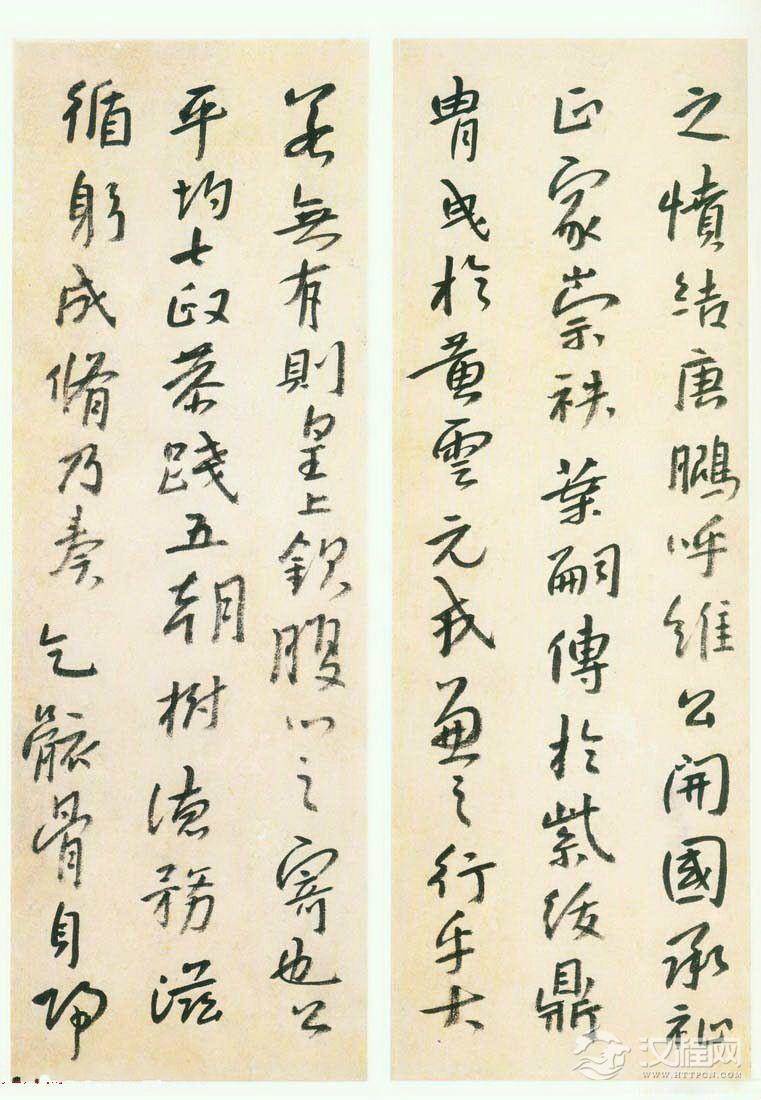 之憤結唐鵬呼維公開國承祉
正家崇袟葉嗣傳於紫綬鼎
胄曳於黃雲元戎之行乎大
若無有則皇上欽腹心之寄也公
平均七政恭踐五朝樹德務滋
循躬成脩乃奏乞骸骨自歸
汉程网
WWW.HTTPCN.COM